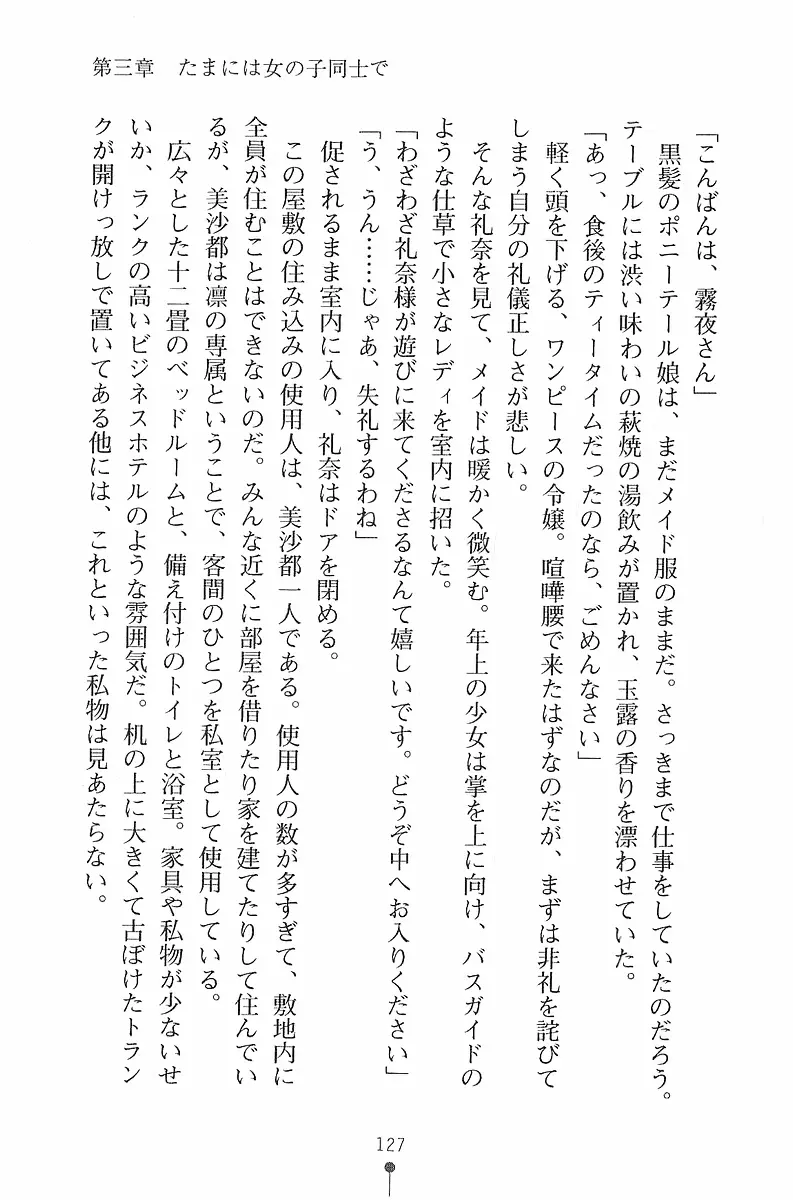 第三章　たまには女の子同士で
「こんばんは、霧夜さん」
　黒髪のポニーテール娘は、まだメイド服のままだ。さっきまで仕事をしていたのだろう。
テーブルには渋い味わいの萩焼の湯飲みが置かれ、玉露の香りを漂わせていた。
「あっ、食後のティータイムだったのなら、ごめんなさい」
　軽く頭を下げる、ワンピースの令嬢。喧嘩腰で来たはずなのだが、まずは非礼を詫びて
しまう自分の礼儀正しさが悲しい。
　そんな礼奈を見て、メイドは暖かく微笑む。年上の少女は掌を上に向け、バスガイドの
ような仕草で小さなレディを室内に招いた。
「わざわざ礼奈様が遊びに来てくださるなんて嬉しいです。どうぞ中へお入りください」
「う、うん……じゃあ、失礼するわね」
　促されるまま室内に入り、礼奈はドアを閉める。
　この屋敷の住み込みの使用人は、美沙都一人である。使用人の数が多すぎて、敷地内に
全員が住むことはできないのだ。みんな近くに部屋を借りたり家を建てたりして住んでい
るが、美沙都は凛の専属ということで、客間のひとつを私室として使用している。
　広々とした十二畳のベッドルームと、備え付けのトイレと浴室。家具や私物が少ないせ
いか、ランクの高いビジネスホテルのような雰囲気だ。机の上に大きくて古ぼけたトラン
クが開けっ放しで置いてある他には、これといった私物は見あたらない。
127